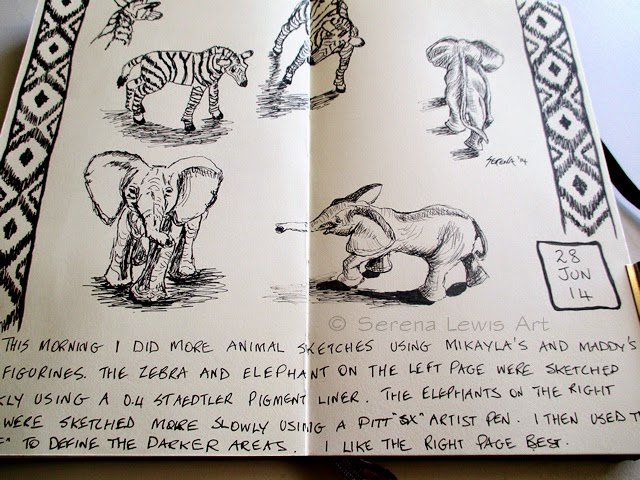 SERENA '14
28
JUN
14
© Serena Lewis Art
THIS MORNING I DID MORE ANIMAL SKETCHES USING MIKAYLA'S AND MADDY'S
FIGURINES. THE ZEBRA AND ELEPHANT ON THE LEFT PAGE WERE SKETCHED
USING A 0.4 STAEDTLER PIGMENT LINER. THE ELEPHANTS ON THE RIGHT
WERE SKETCHED MORE SLOWLY USING A PITT "SX" ARTIST PEN. I THEN USED
TO DEFINE THE DARKER AREAS. I LIKE THE RIGHT PAGE BEST.